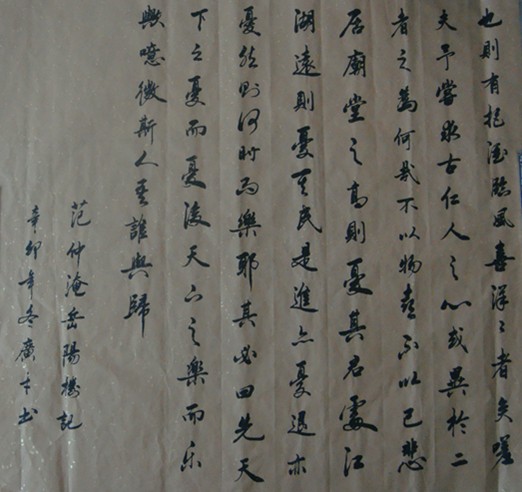 也則有把酒臨風喜洋々者矣嗟
夫予嘗求古仁人之心或異於二
者之為何哉不以物喜不以己悲
居廟堂之高則憂其君處江
湖遠則憂其民是進亦憂退亦
憂然則何时而樂耶其必曰先天
下之憂而憂後天下之樂而乐
歟噫微斯人吾誰與歸
范仲淹岳陽楼記
辛卯年冬廣书